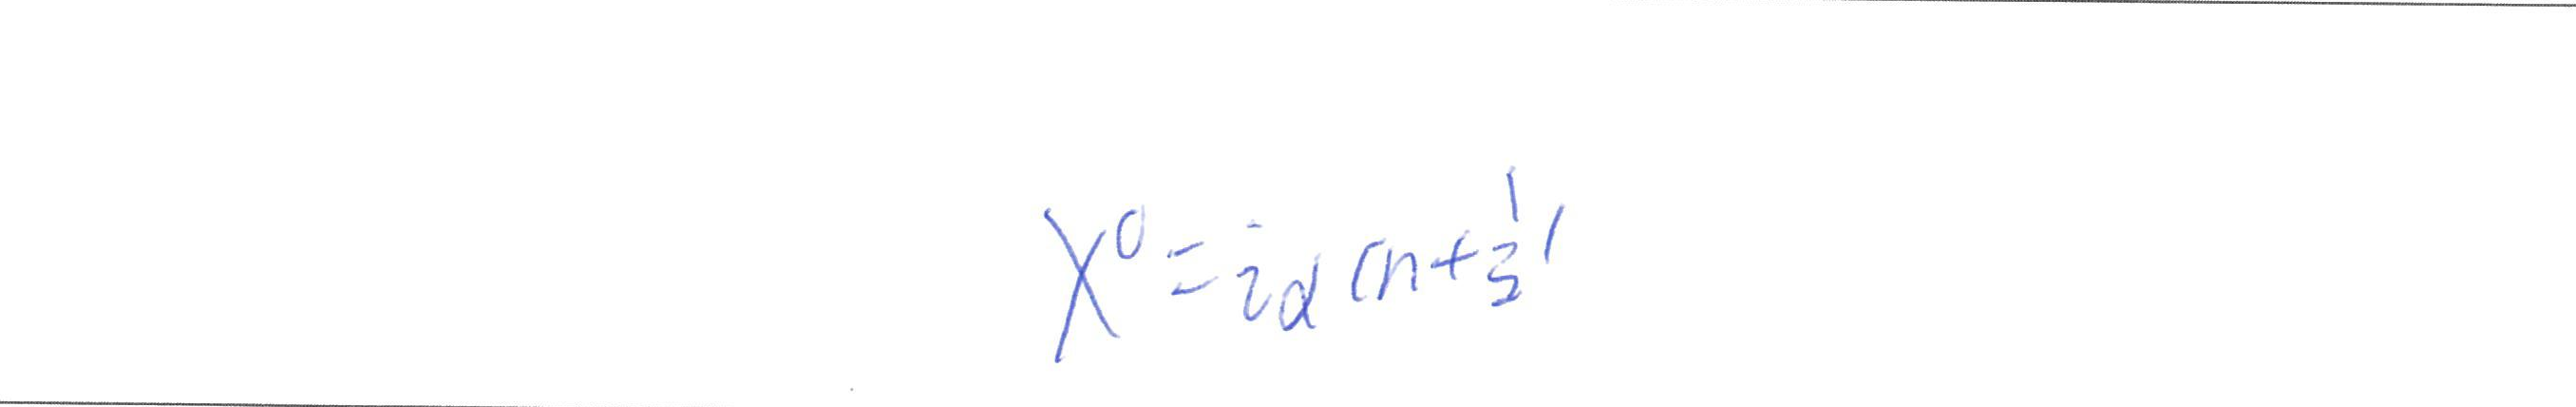 X⁰ = iα(n+½)